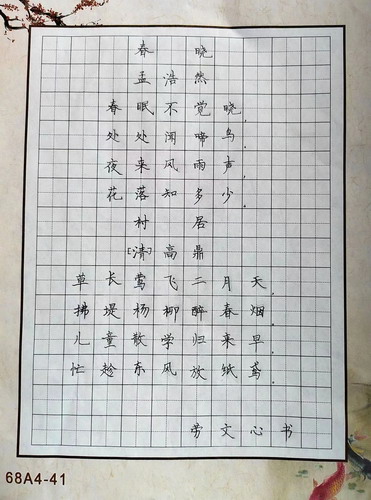 春晓
孟浩然
春眠不觉晓,
处处闻啼鸟。
夜来风雨声,
花落知多少。
村居
[清]高鼎
草长莺飞二月天,
拂堤杨柳醉春烟。
儿童散学归来早,
忙趁东风放纸鸢。
劳文心书
68A4-41